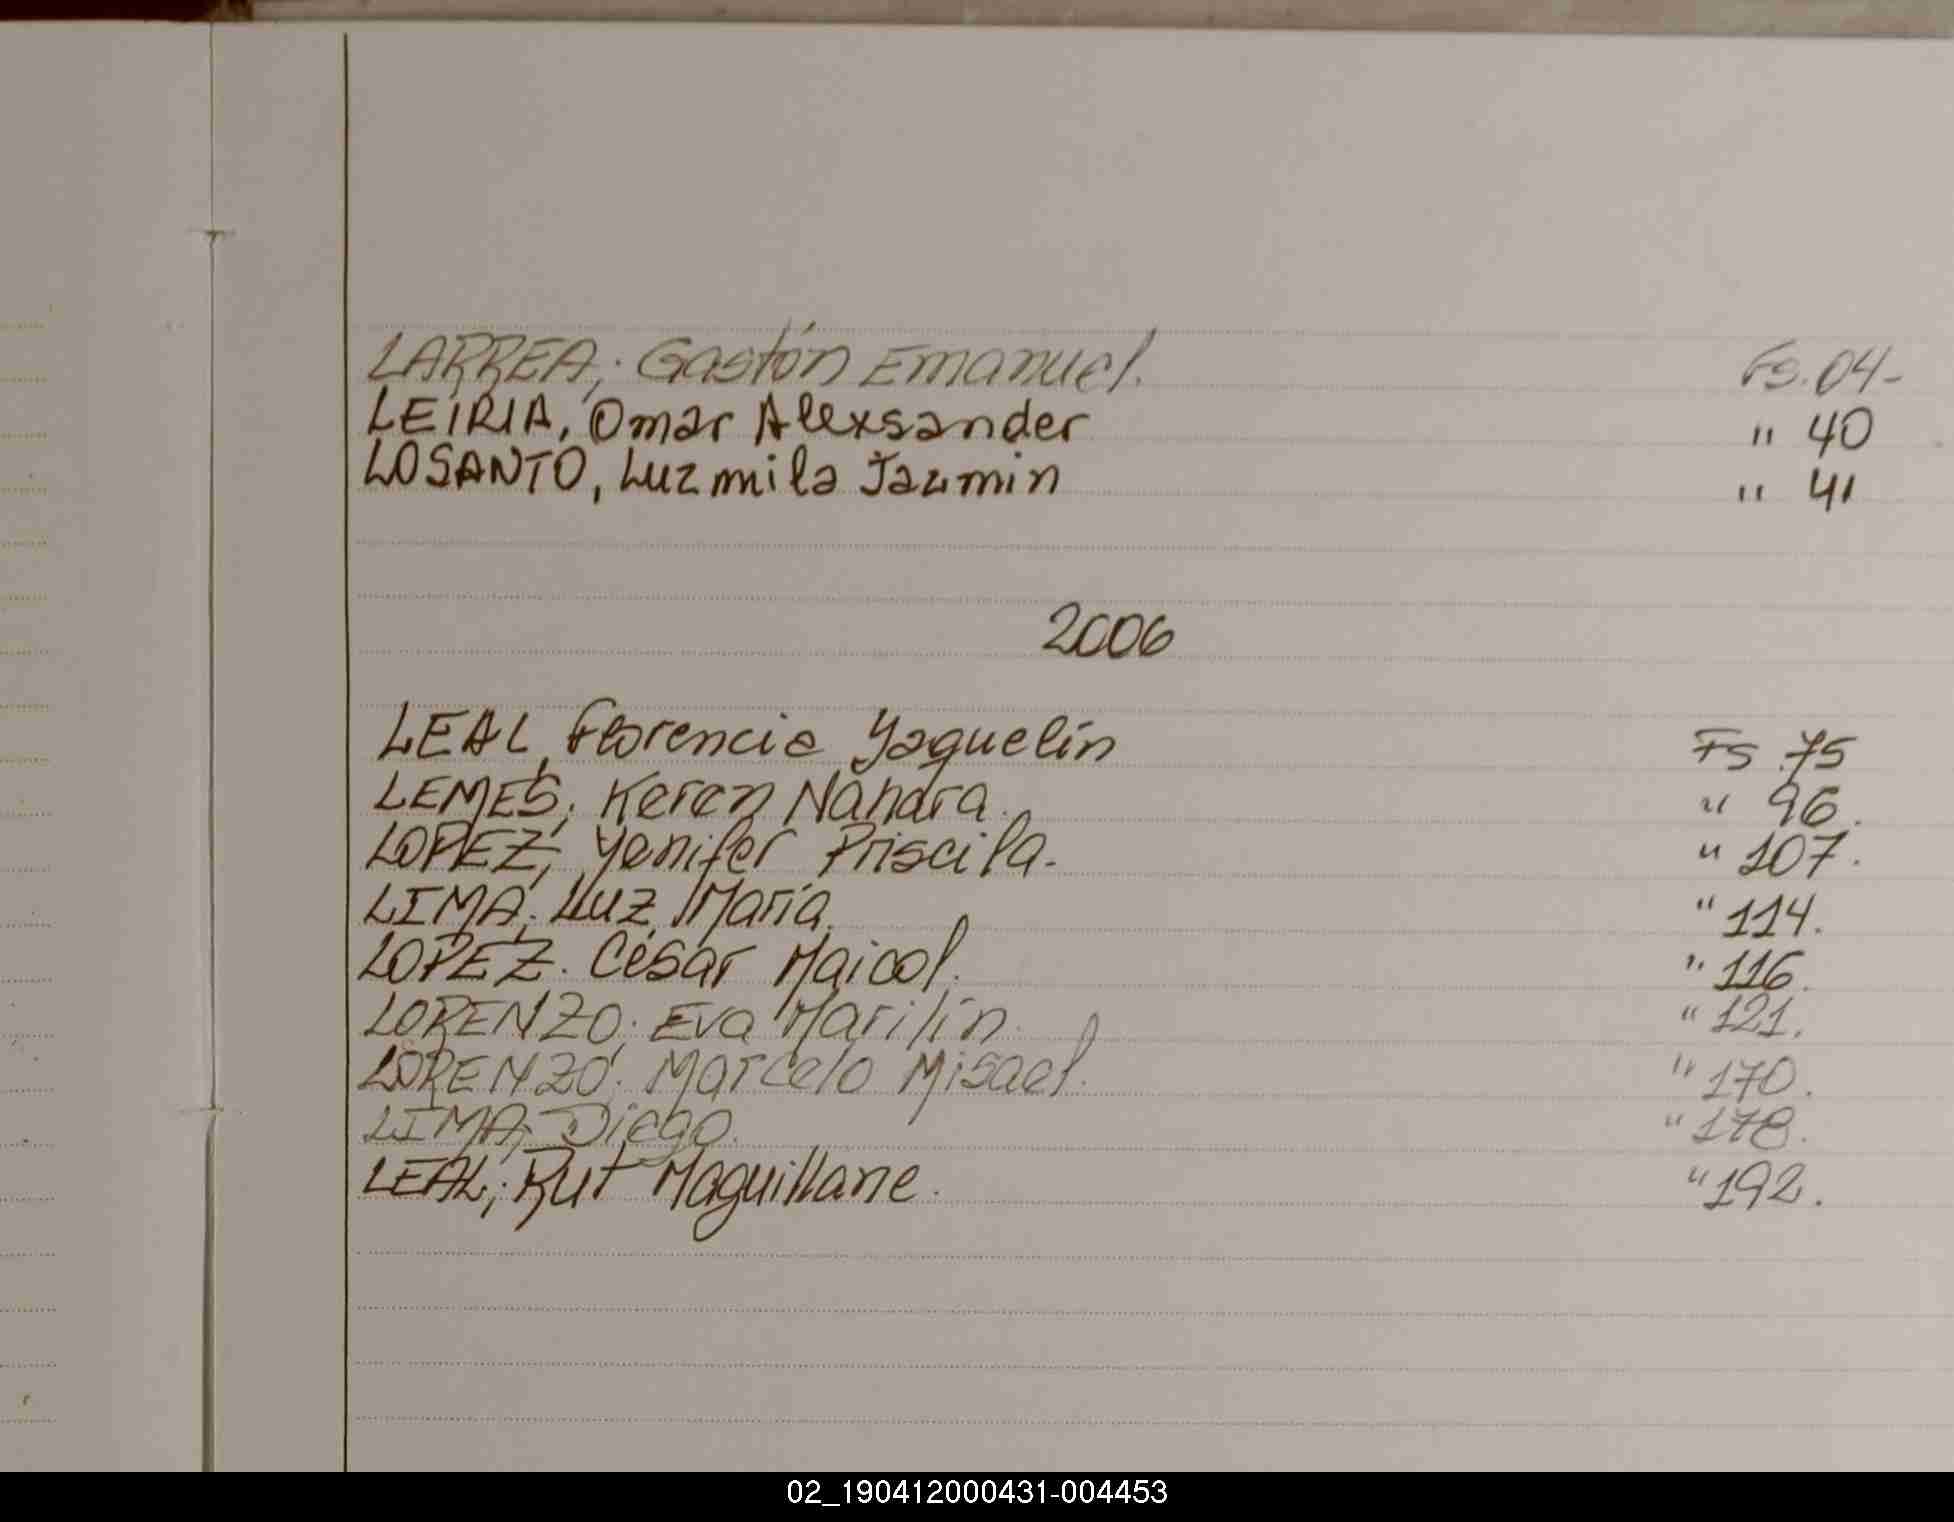 LARREA; Gastón Emanuel. Fs. 04-
LEIRIA, Omar Alexsander " 40
LOSANTO, Luzmila Jazmin " 41
2006
LEAL, Florencia Yaquelín Fs 75
LEMES; Keren Nahara. " 96.
LOPEZ; Yenifer Priscila. " 107.
LIMA; Luz María. " 114.
LOPEZ. César Maicol. " 116.
LORENZO; Eva Marilín. " 121.
LORENZO; Marcelo Misael. " 170.
LIMA; Diego. " 178.
LEAL; Rut Maquillane. " 192.
02_190412000431-004453